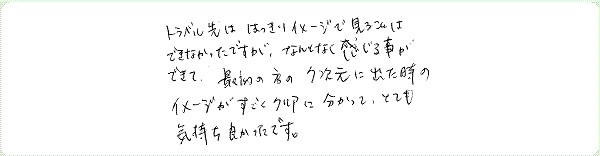 トラベル先は はっきりイメージで見ることは
できなかったですが、なんとなく感じる事が
できて、最初の方の 7次元に出た時の
イメージがすごくクリアに分かって、とても
気持ち良かったです。